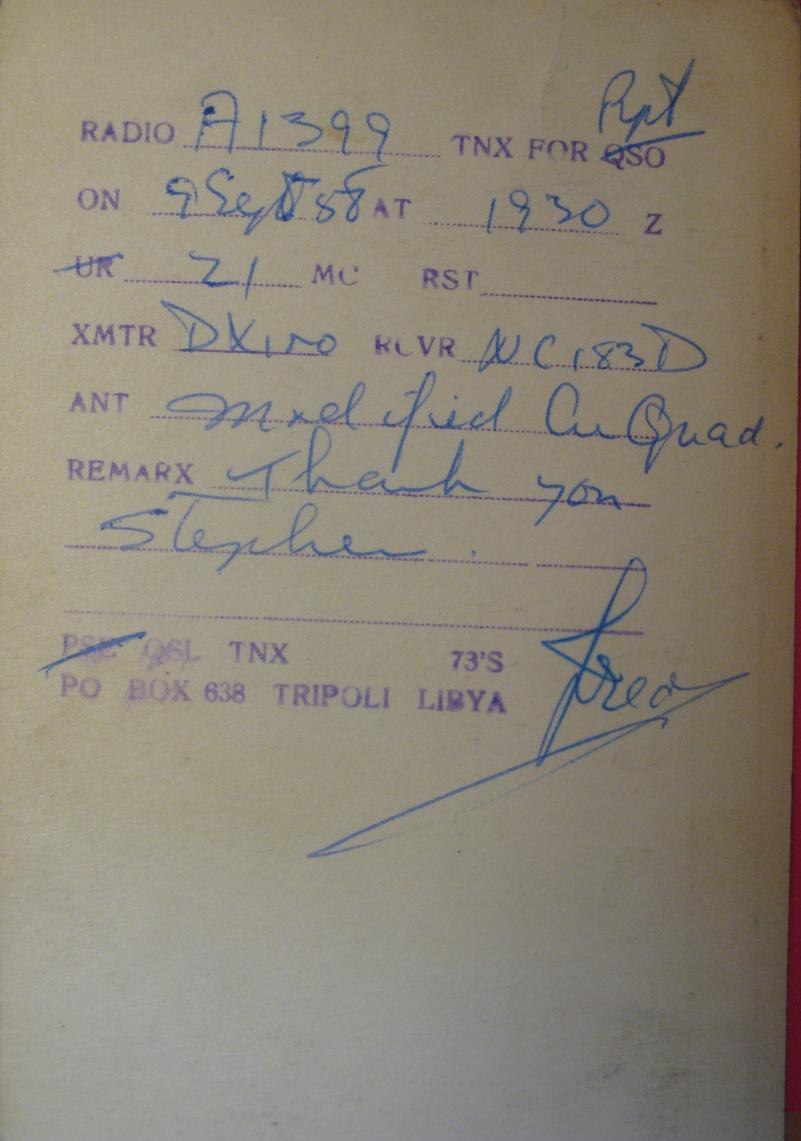 Rpt
RADIO A1399 TNX FOR QSO
ON 9 Sept 58 AT 1930 Z
UR 21 MC RST
XMTR DX100 RCVR NC183D
ANT Modified Cu Quad.
REMARX Thank you
Stephen.
PSE QSL TNX 73'S Fred
PO BOX 638 TRIPOLI LIBYA